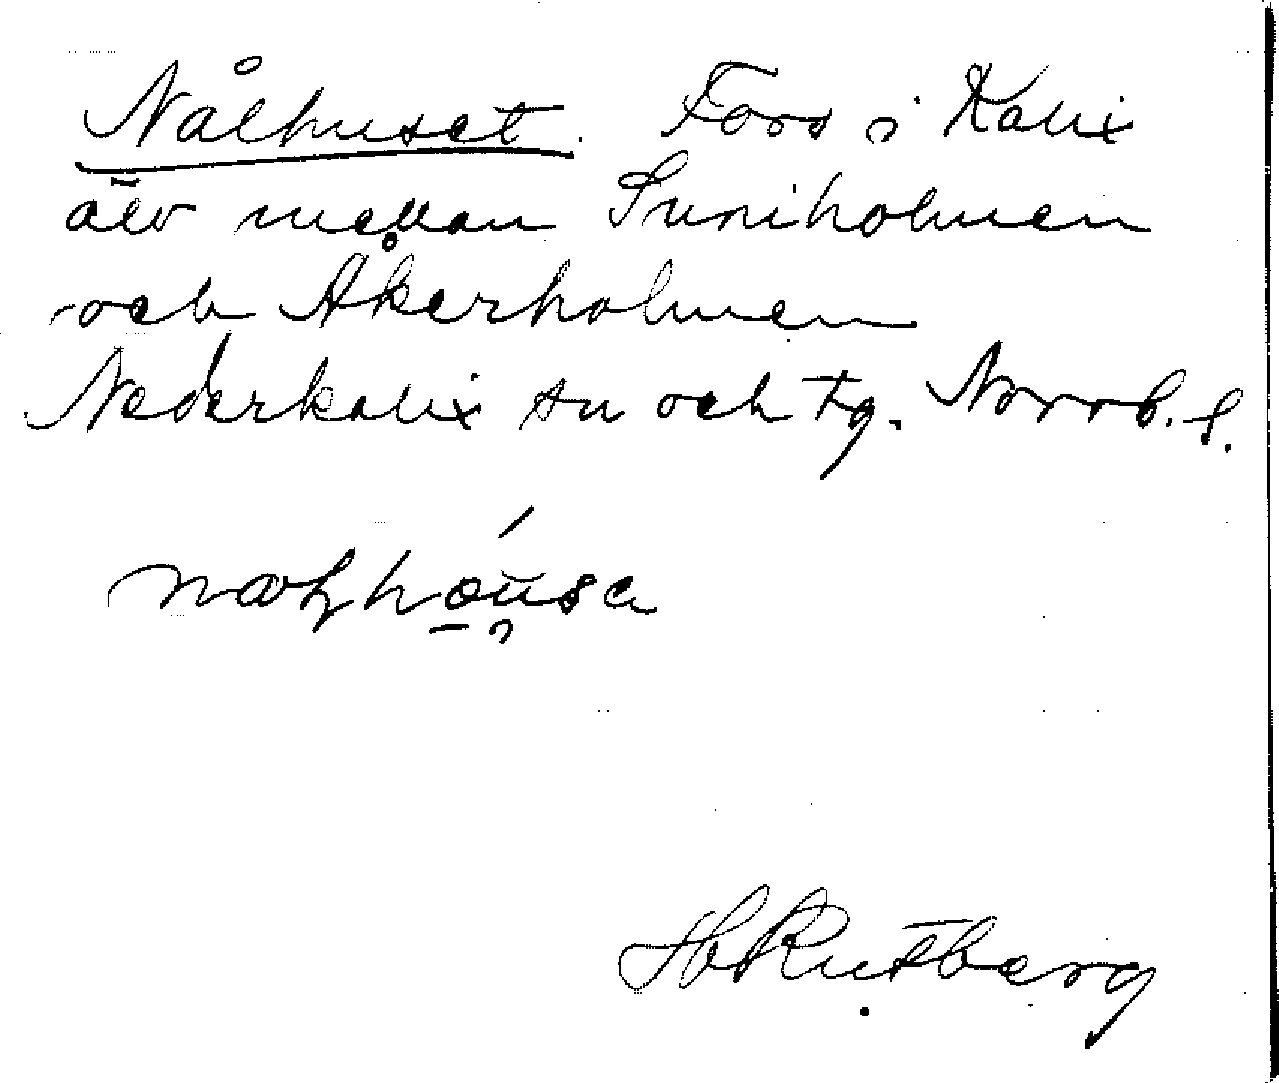 Nålhuset. Fors i Kalix
älv mellan Suniholmen
och Åkerholmen
Nederkalix sn och tg. Norrb. l.
H Rutberg